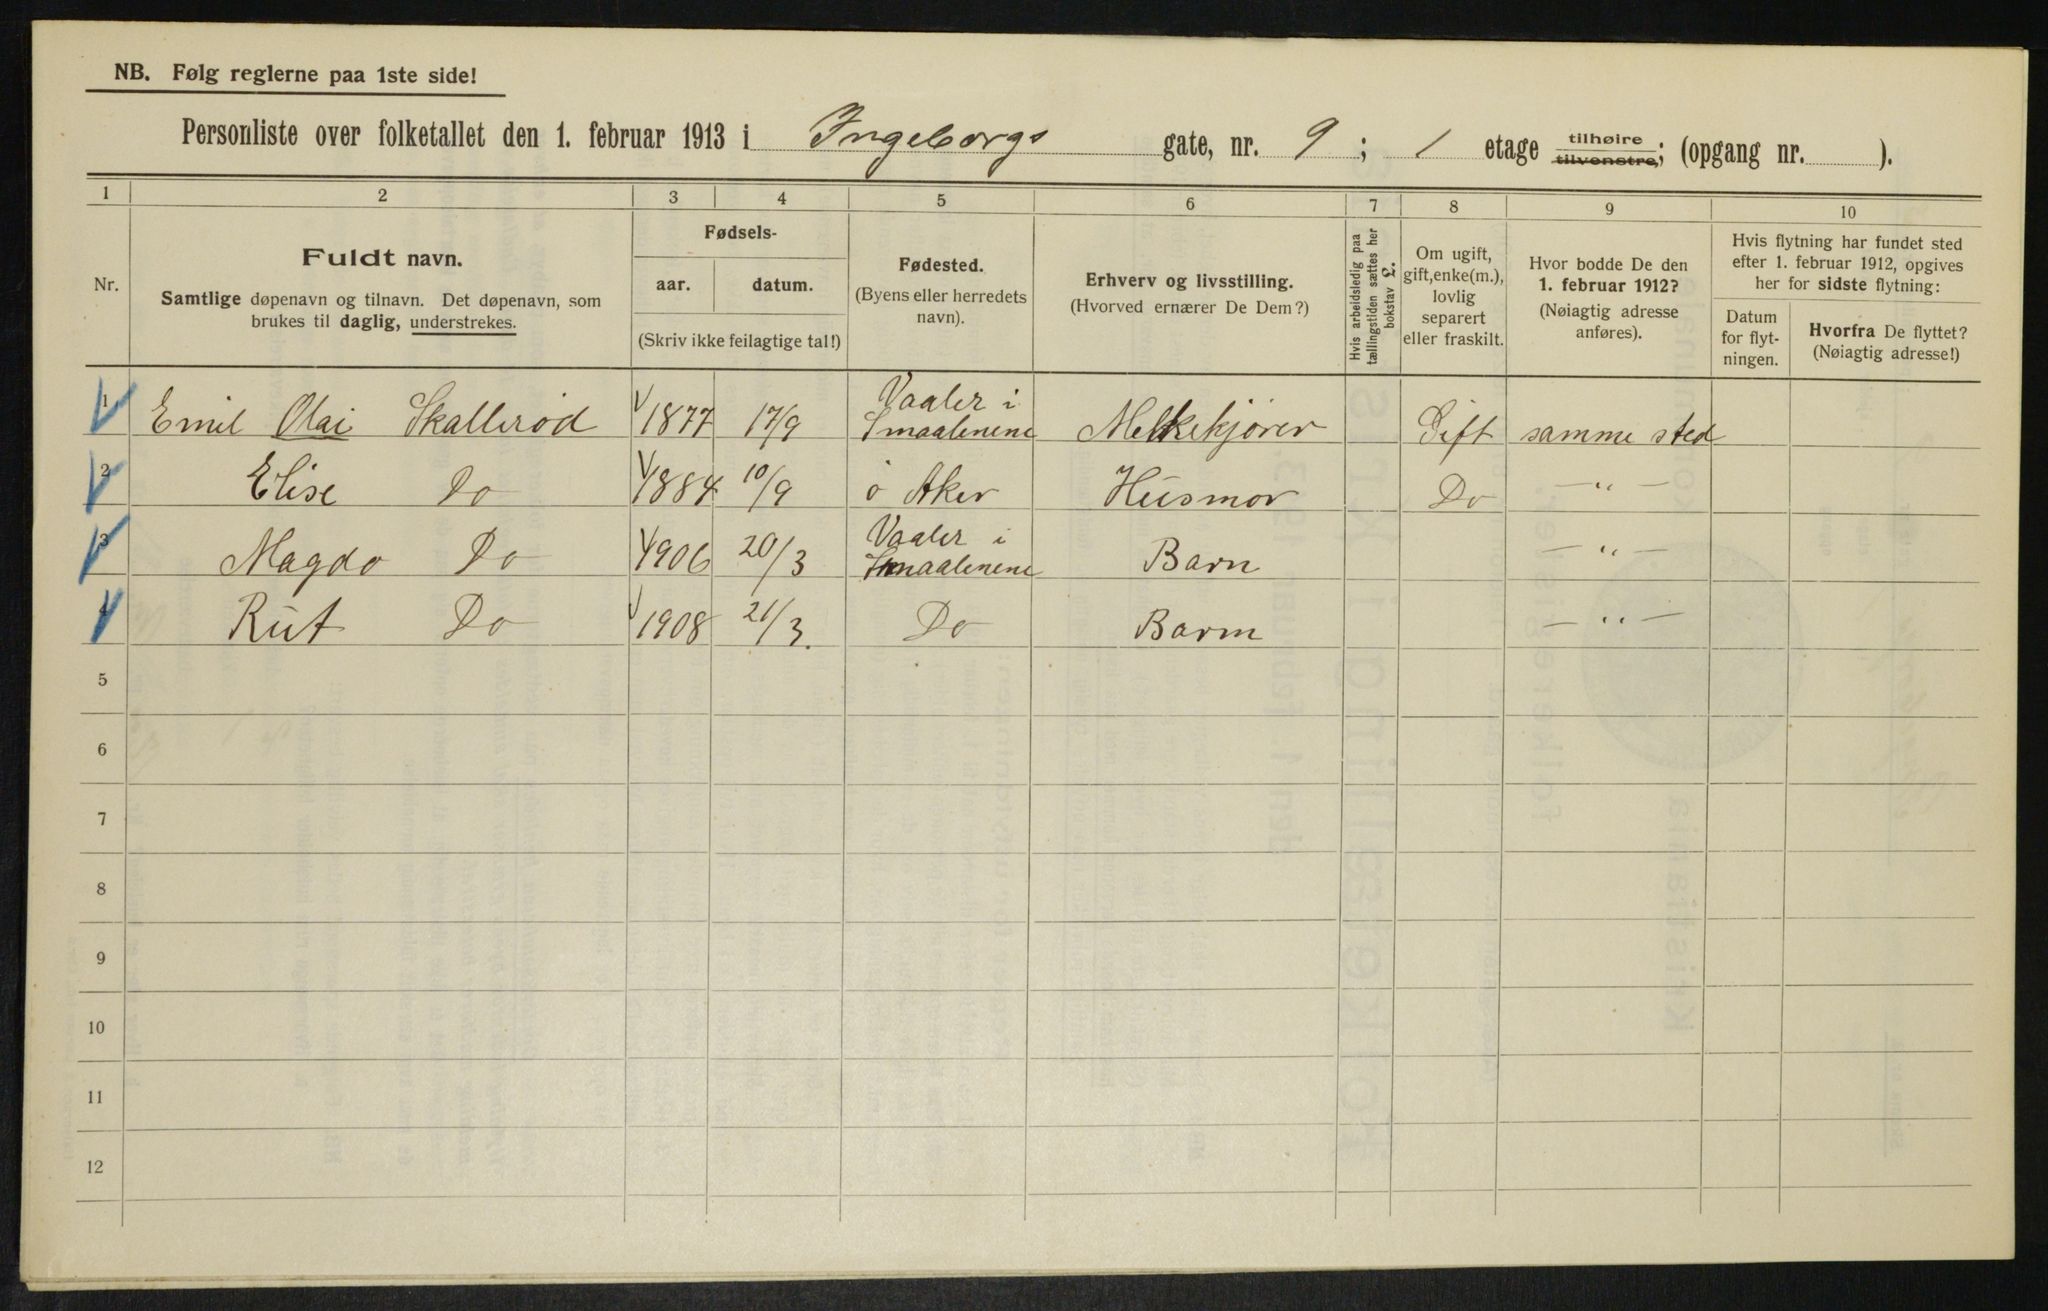 NB. Følg reglerne paa 1ste side!
Personliste over folketallet den 1. februar 1913 i Ingeborgs gate, nr. 9; 1 etage tilhøire tilvenstre; (opgang nr. ).
1 2 3 4 5 6 7 8 9 10
Nr.
Fuldt navn.
Samtlige døpenavn og tilnavn. Det døpenavn, som
brukes til daglig, understrekes.
Fødsels-
aar. datum.
(Skriv ikke feilagtige tal!)
Fødested.
(Byens eller herredets
navn).
Erhverv og livsstilling.
(Hvorved ernærer De Dem?)
Hvis arbeidsledig paa
tællingstiden sættes her
bokstav L.
Om ugift,
gift, enke(m.),
lovlig
separert
eller fraskilt.
Hvor bodde De den
1. februar 1912?
(Nøiagtig adresse
anføres).
Hvis flytning har fundet sted
efter 1. februar 1912, opgives
her for sidste flytning:
Datum
for flyt-
ningen.
Hvorfra De flyttet?
(Nøiagtig adresse!)
1 Emil Olai Skallerød 1877 17/9 Vaaler i Smaalenene Melkekjører Gift samme sted
2 Elise Do 1884 10/9 ö Aker Husmor Do —"—
3 Magda Do 1906 20/3 Vaaler i Smaalenene Barn —"—
4 Rut Do 1908 21/3. Do Barn —"—
5
6
7
8
9
10
11
12